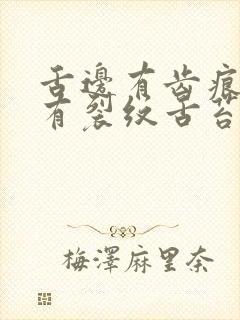 舌邊有齒痕
有裂纹舌苔
梅澤麻里奈